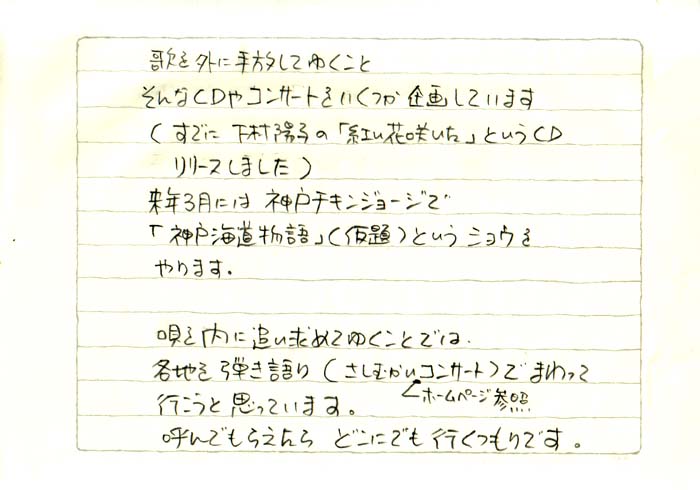 歌を外に手放してゆくこと
そんなCDやコンサートをいくつか企画しています
(すでに 下村陽子の「紅い花咲いた」というCD
リリースしました)
来年3月には 神戸チキンジョージで
「神戸海道物語」(仮題)という ショウを
やります。
唄を内に追い求めてゆくことでは、
各地を弾き語り(さしむかいコンサート)でまわって
ホームページ参照
行こうと思っています。
呼んでもらえたら どこにでも行くつもりです。